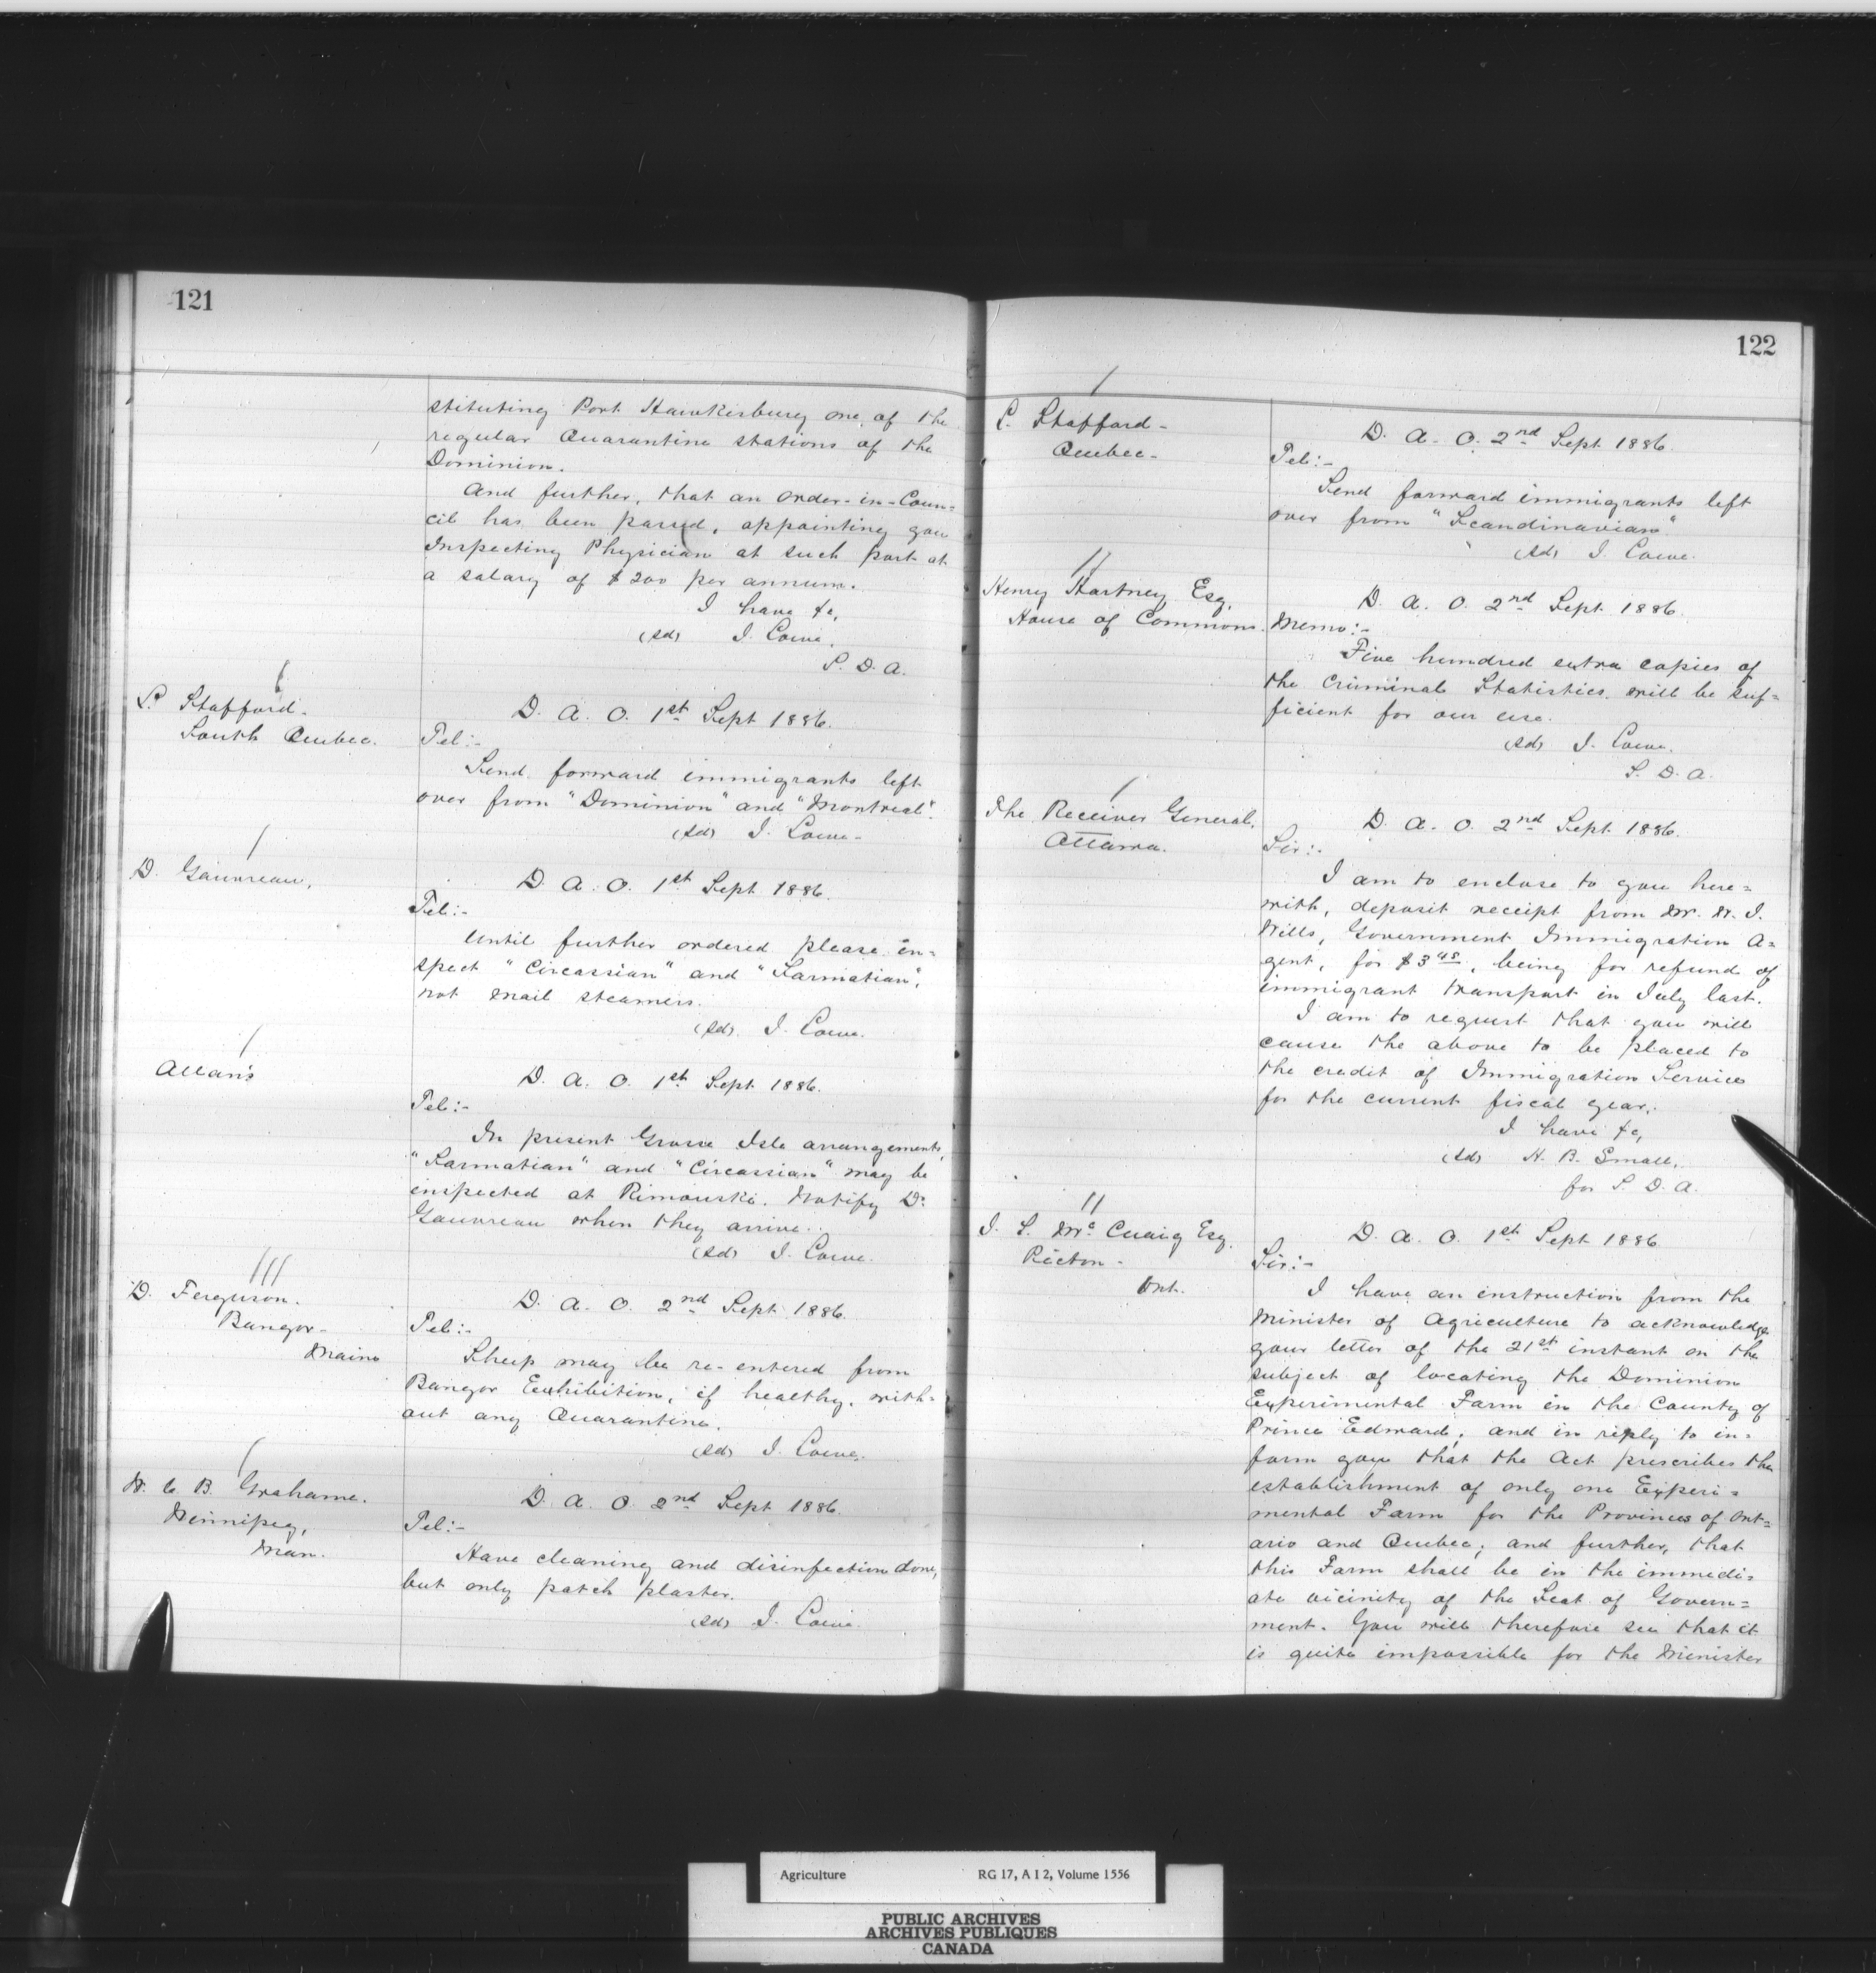 121
stituting Port Hawkesbury one of the
regular Quarantine stations of the
Dominion.
And further, that an Order-in-Coun=
cil has been passed, appointing you
Inspecting Physician at such port at
a salary of $200 per annum.
I have &c,
(sd) J. Lowe.
S. D. A.
L. Stafford.
South Quebec.
D. A. O. 1st Sept 1886.
Tel:-
Send forward immigrants left
over from "Dominion" and "Montreal".
(sd) J. Lowe-
D. Gauvreau.
D. A. O. 1st Sept 1886.
Tel:-
Until further ordered please in=
spect "Circassian" and "Sarmatian",
not mail steamers.
(sd). J. Lowe.
Allan's
D. A. O. 1st Sept 1886.
Tel:-
In present Grosse Isle arrangements,
"Sarmatian" and "Circassian" may be
inspected at Rimouski. Notify Dr
Gauvreau when they arrive.
(sd) J. Lowe.
D. Ferguson.
Bangor-
Maine
D. A. O. 2nd Sept 1886.
Tel:-
Sheep may be re-entered from
Bangor Exhibition, if healthy, with=
out any Quarantine.
(sd) J. Lowe.
W. C. B. Grahame.
Winnipeg,
Man.
D. A. O. 2nd Sept 1886.
Tel:-
Have cleaning and disinfection done,
but only patch plaster.
(sd) J. Lowe.
122
L. Stafford-
Quebec-
D. A. O. 2nd Sept 1886.
Tel:-
Send forward immigrants left
over from "Scandinavian"
(sd) J. Lowe.
Henry Hartney Esq.
House of Commons.
D. A. O. 2nd Sept 1886.
Memo:-
Five hundred extra copies of
the Criminal Statistics will be suf=
ficient for our use.
(sd) J. Lowe.
S. D. A.
The Receiver General,
Ottawa.
D. A. O. 2nd Sept 1886.
Sir:-
I am to enclose to you here=
with, deposit receipt from Mr. W. J.
Wills, Government Immigration A=
gent, for $3 45, being for refund of
immigrant transport in July last.
I am to request that you will
cause the above to be placed to
the credit of Immigration Service
for the current fiscal year.
I have &c,
(sd) H. B. Small,
for S. D. A.
J. S. McCuaig Esq.
Picton-
Ont.
D. A. O. 1st Sept 1886
Sir:-
I have an instruction from the
Minister of Agriculture to acknowledge
your letter of the 21st instant on the
subject of locating the Dominion
Experimental Farm in the County of
Prince Edward; and in reply to in=
form you that the Act prescribes the
establishment of only one Experi=
mental Farm for the Provinces of Ont=
ario and Quebec; and further, that
this Farm shall be in the immedi=
ate vicinity of the Seat of Govern=
ment. You will therefore see that it
is quite impossible for the Minister
Agriculture RG 17, A I 2, Volume 1556
PUBLIC ARCHIVES
ARCHIVES PUBLIQUES
CANADA